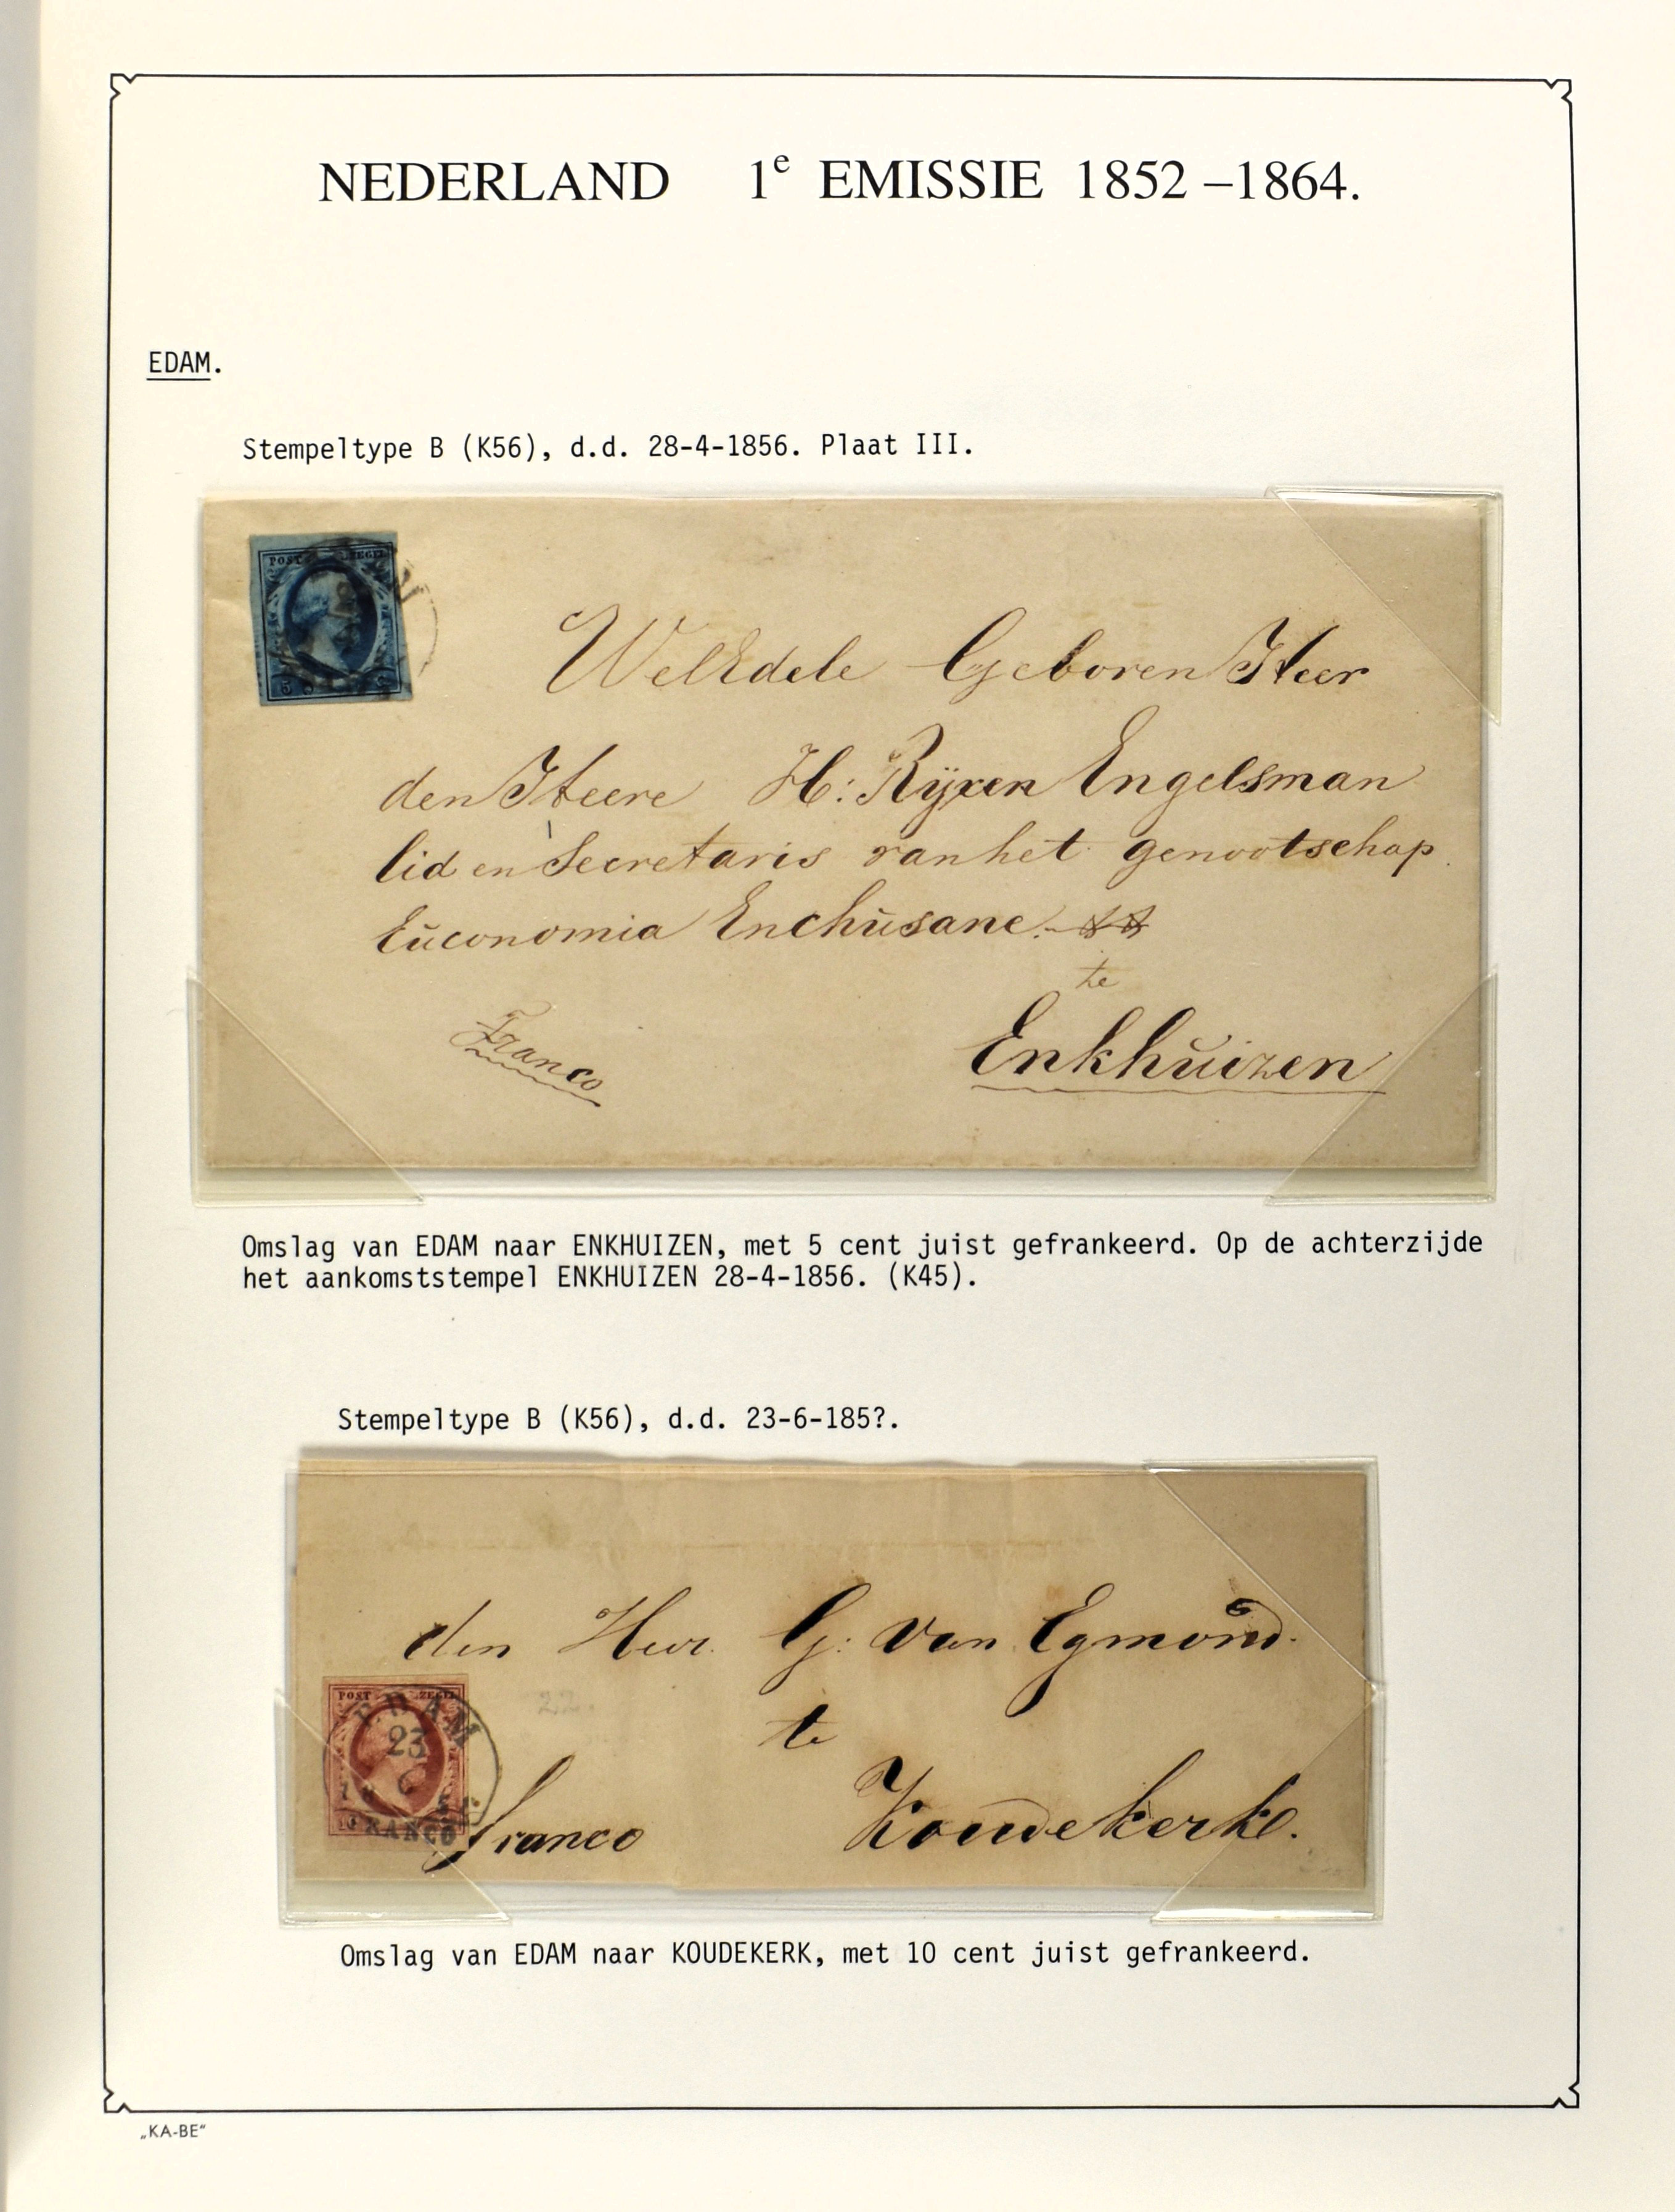 NEDERLAND 1e EMISSIE 1852 –1864.
EDAM.
Stempeltype B (K56), d.d. 28-4-1856. Plaat III.
POST ZEGEL
WelEdele Geboren Heer
den Heere H: Rÿxen Engelsman
lid en Secretaris van het genootschap
Eŭconomia Enchŭsane.
te
Enkhŭizen
Franco
Omslag van EDAM naar ENKHUIZEN, met 5 cent juist gefrankeerd. Op de achterzijde
het aankomststempel ENKHUIZEN 28-4-1856. (K45).
Stempeltype B (K56), d.d. 23-6-185?.
den Heer G: van Egmond.
te
Koudekerke.
franco
POST ZEGEL
EDAM
23
6
FRANCO
22.
Omslag van EDAM naar KOUDEKERK, met 10 cent juist gefrankeerd.
„KA-BE“